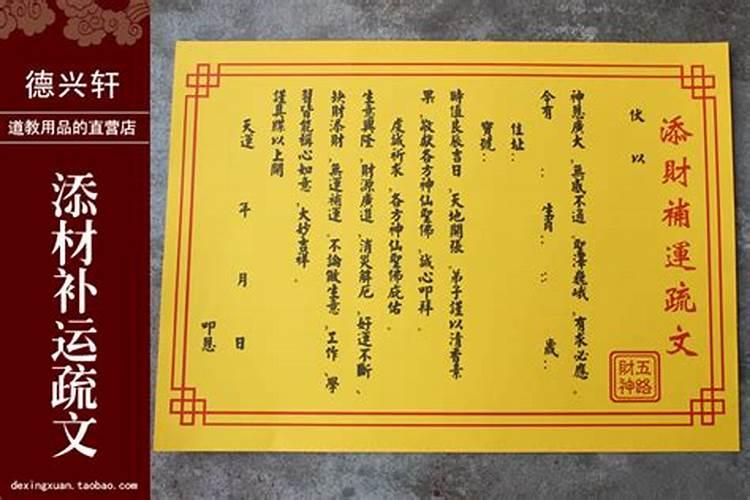 德兴轩
道教用品的直营店
添材补运疏文
dexingxuan.taobao.com
添財補運疏文
五路
財神
伏以
神恩廣大、無感不通、聖澤巍峨、有求必應。
今有：生肖：：歲：
住址：
寶號：
時值良辰吉日、天地開張、弟子謹以清香素
果、敬獻各方神仙聖佛、誠心叩拜。
虔誠祈求、各方神仙聖佛庇佑。
生意興隆、財源廣進、消災解厄、好運不斷、
缺財添財、無運補運、不論做生意、工作、學
習皆能稱心如意、大妙吉祥。
謹具牒以上聞
天運 年 月 日
叩恩